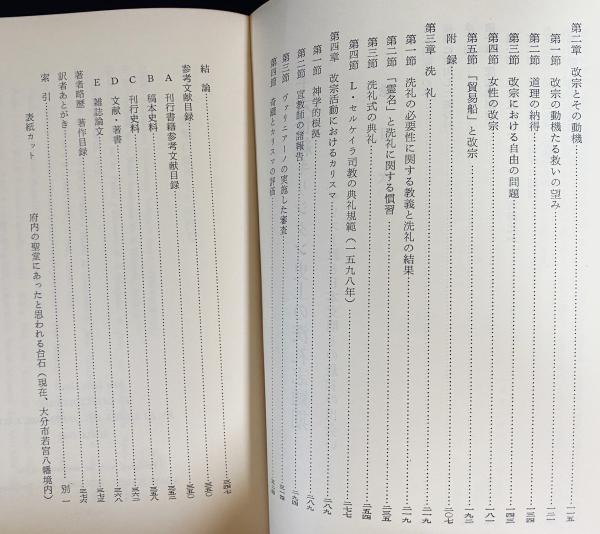 第二章 改宗とその動機……一一五
第一節 改宗の動機たる救いの望み……一二一
第二節 道理の納得……一三四
第三節 改宗における自由の問題……一四三
第四節 女性の改宗……一八一
第五節 「貿易船」と改宗……一九二
附録……二〇七
第三章 洗礼……二一九
第一節 洗礼の必要性に関する教義と洗礼の結果……二一九
第二節 「霊名」と洗礼に関する慣習……二三五
第三節 洗礼式の典礼……二五四
第四節 L・セルケイラ司教の典礼規範(一五九八年)……二七七
第四章 改宗活動におけるカリスマ……二八九
第一節 神学的根拠……二八九
第二節 宣教師の諸報告……二九四
第三節 ヴァリニアーノの実施した審査……三一四
第四節 奇蹟とカリスマの評価
結論……三四七
参考文献目録……三五一
A 刊行書籍参考文献目録……三五二
B 稿本史料……三五九
C 刊行史料……三六二
D 文献・著書……三六八
E 雑誌論文……三七三
著者略歴 著作目録……三七六
訳者あとがき……別一
索引
表紙カット 府内の聖堂にあったと思われる台石(現在、大分市若宮八幡境内)